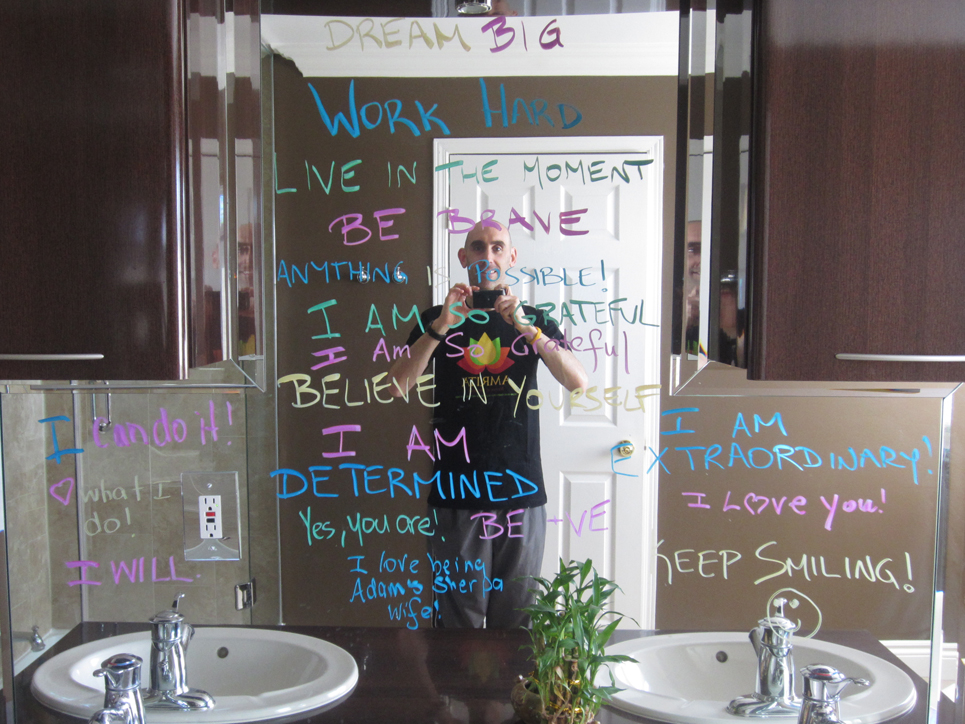 DREAM BIG
WORK HARD
LIVE IN THE MOMENT
BE BRAVE
ANYTHING IS POSSIBLE!
I AM SO GRATEFUL
I Am So Grateful
BELIEVE IN YOURSELF
I AM
DETERMINED
Yes, you are! BE +VE
I love being
Adam's Sherpa
Wife!
I can do it!
♡ what I
do!
I WILL.
I AM
EXTRAORDINARY!
I L♡ve you!
KEEP SMILING!
AMRITA